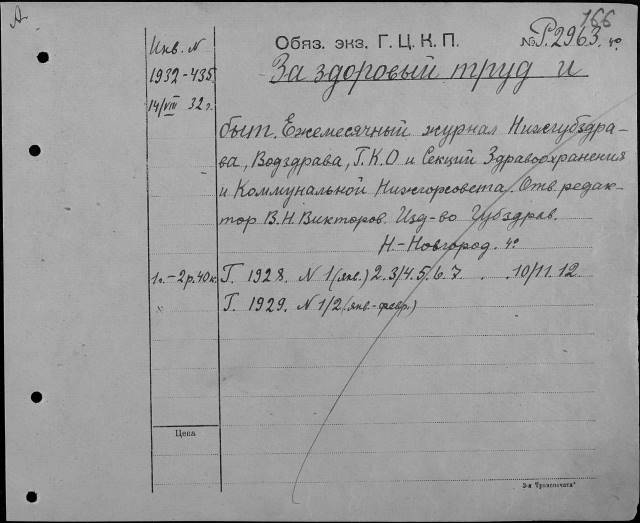 А
166
Инв. N
Обяз. экз. Г. Ц. К. П.
№ Р.2963. 4º
1932-435
За здоровый труд и
14/VIII 32 г.
быт. Ежемесячный журнал Нижгубздра-
ва, Водздрава, Г.К.О и Секций Здравоохранения
и Коммунальной Нижгорсовета. Отв. редак-
тор В.Н. Викторов. Изд-во Губздрав.
Н.-Новгород. 4º
1 г. - 2 р. 40 к.
Г. 1928. N 1 (янв.) 2.3/4.5/6.7 . 10/11.12
x
Г. 1929. N 1/2 (янв.-февр.)
Цена
3-я Транспечать